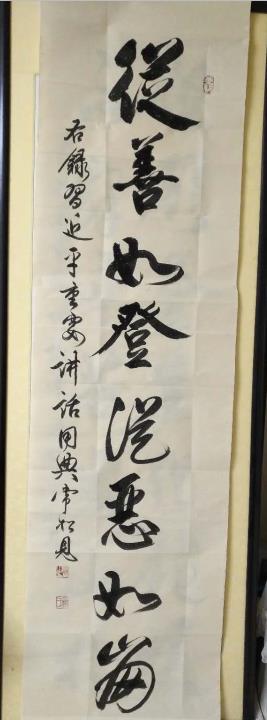 從善如登從惡如崩
右錄習近平重要讲话用典常松見